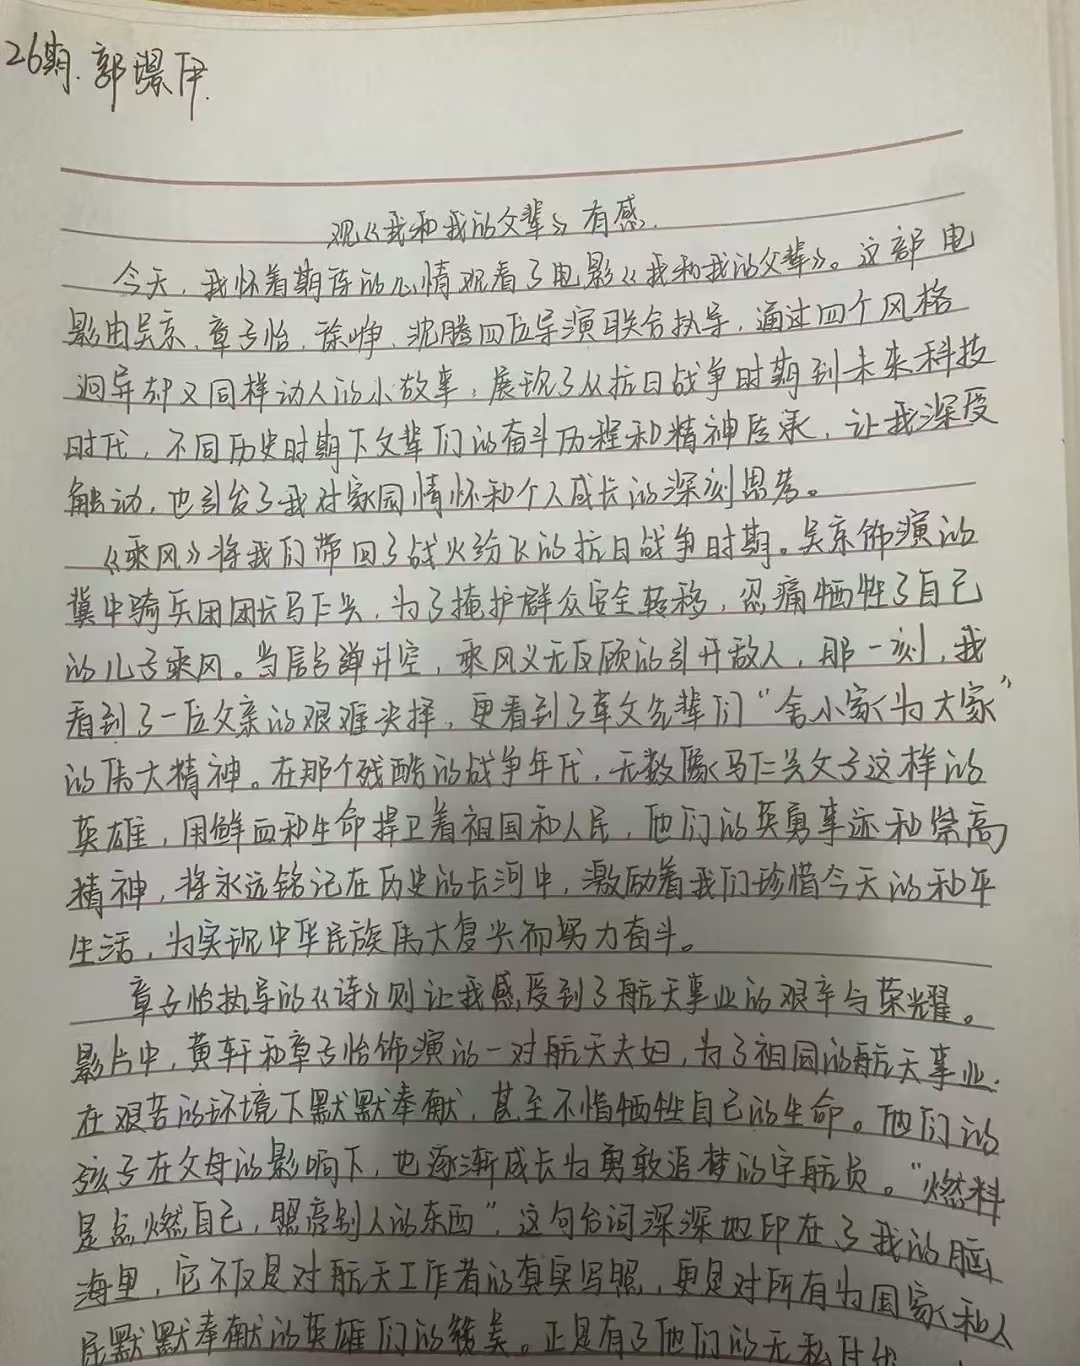 26期.郭璟伊.
观《我和我的父辈》有感.
今天，我怀着期待的心情观看了电影《我和我的父辈》。这部电
影由吴京、章子怡、徐峥、沈腾四位导演联合执导，通过四个风格
迥异却又同样动人的小故事，展现了从抗日战争时期到未来科技
时代，不同历史时期下父辈们的奋斗历程和精神传承，让我深受
触动，也引发了我对家园情怀和个人成长的深刻思考。
《乘风》将我们带回了战火纷飞的抗日战争时期。吴京饰演的
冀中骑兵团团长马仁兴，为了掩护群众安全转移，忍痛牺牲了自己
的儿子乘风。当信号弹升空，乘风义无反顾的引开敌人，那一刻，我
看到了一位父亲的艰难决择，更看到了革文先辈们“舍小家为大家”
的伟大精神。在那个残酷的战争年代，无数像马仁兴父子这样的
英雄，用鲜血和生命捍卫着祖国和人民，他们的英勇事迹和崇高
精神，将永远铭记在历史的长河中，激励着我们珍惜今天的和平
生活，为实现中华民族伟大复兴而努力奋斗。
章子怡执导的《诗》则让我感受到了航天事业的艰辛与荣耀。
影片中，黄轩和章子怡饰演的一对航天夫妇，为了祖国的航天事业.
在艰苦的环境下默默奉献，甚至不惜牺牲自己的生命。他们的
孩子在父母的影响下，也逐渐成长为勇敢追梦的宇航员。“燃料
是点燃自己，照亮别人的东西”，这句台词深深地印在了我的脑
海里，它不仅是对航天工作者的真实写照，更是对所有为国家和人
民默默奉献的英雄们的赞美。正是有了他们的无私付出